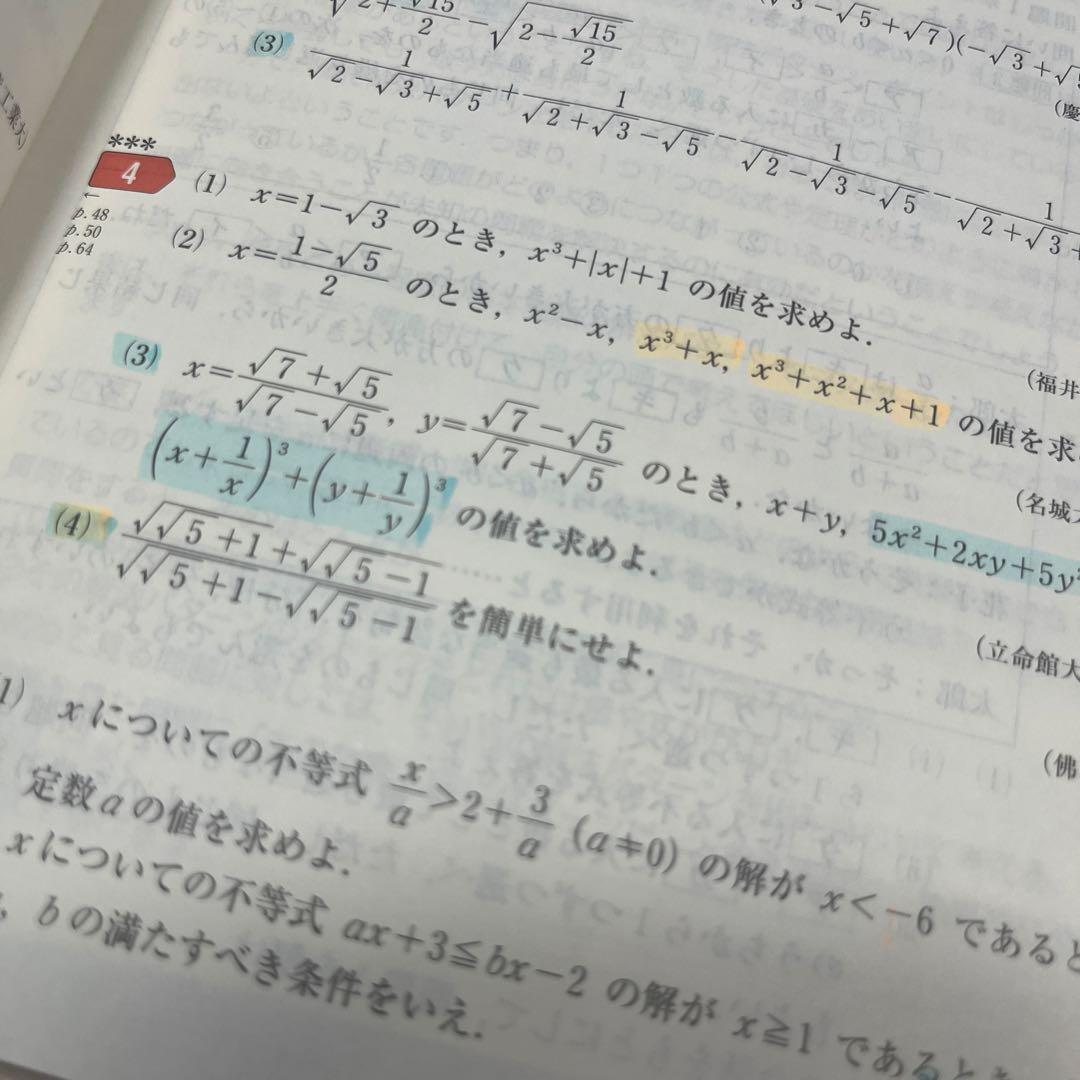 √2+√15/2 − √(2−√15/2)
√3−√5+√7)(−√3+√5
(慶
(3) 1/(√2−√3+√5) + 1/(√2+√3−√5) − 1/(√2−√3−√5) − 1/(√2+√3+
工業大)
***
4
←
p.48
p.50
p.64
(1) x=1−√3 のとき, x³+|x|+1 の値を求めよ.
(福井
(2) x=(1−√5)/2 のとき, x²−x, x³+x, x³+x²+x+1 の値を求
(名城大
(3) x=(√7+√5)/(√7−√5), y=(√7−√5)/(√7+√5) のとき, x+y, 5x²+2xy+5y²
(x+1/x)³+(y+1/y)³ の値を求めよ.
(立命館大
(4) (√(√5+1)+√(√5−1))/(√(√5+1)−√(√5−1)) を簡単にせよ.
(佛
1) xについての不等式 x/a>2+3/a (a≠0) の解が x<−6 であると
定数aの値を求めよ.
xについての不等式 ax+3≦bx−2 の解が x≧1 であるとき
, bの満たすべき条件をいえ.